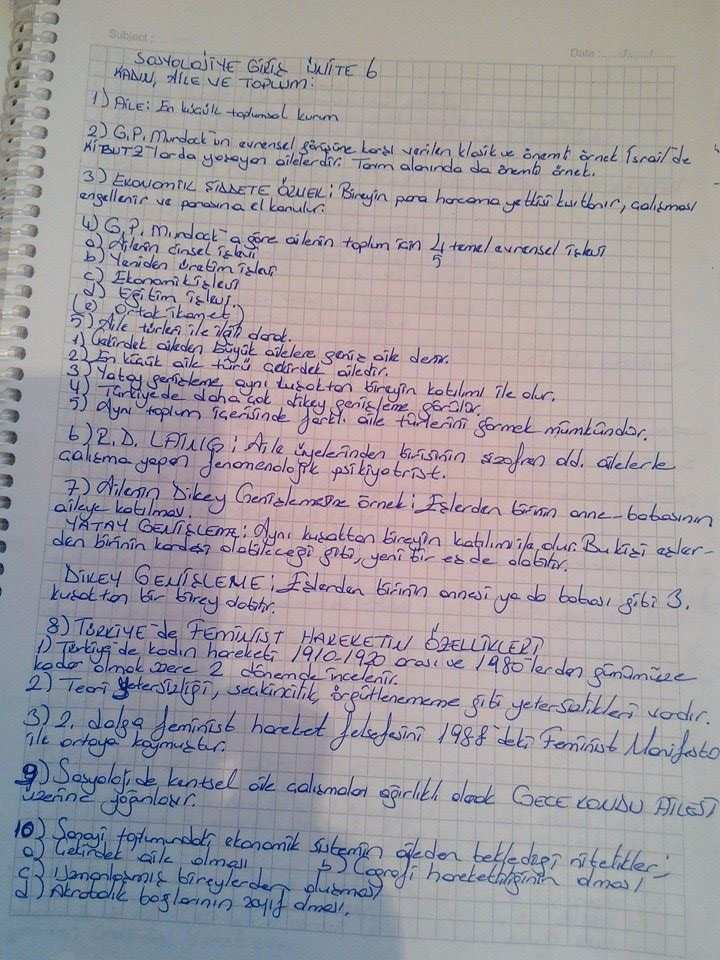 Subject :
Date : ..../..../....
SOSYOLOJİYE GİRİŞ ÜNİTE 6
KADIN, AİLE VE TOPLUM:
1) AİLE: En küçük toplumsal kurum
2) G.P. Murdock-un evrensel görüşüne karşı verilen klasik ve önemli örnek İsrail'de
KİBUTZ-larda yaşayan ailelerdir. Tarım alanında da önemli örnek.
3) EKONOMİK ŞİDDETE ÖRNEK: Bireyin para harcama yetkisi kısıtlanır, çalışması
engellenir ve parasına el konulur.
4) G.P. Murdock-a göre ailenin toplum için 4 temel evrensel işlevi
5
a) Ailenin cinsel işlevi
b) Yeniden üretim işlevi
c) Ekonomik işlevi
d) Eğitim işlevi.
(e) Ortak ikamet)
5) Aile türleri ile ilgili olarak.
1) Çekirdek aileden büyük ailelere geniş aile denir.
2) En küçük aile türü çekirdek ailedir.
3) Yatay genişleme aynı kuşaktan bireyin katılımı ile olur.
4) Türkiyede daha çok dikey genişleme görülür.
5) Aynı toplum içerisinde farklı aile türlerini görmek mümkündür.
6) R.D. LAING: Aile üyelerinden birisinin şizofren old. ailelerle
çalışma yapan fenomenolojik psikiyatrist.
7) Ailenin Dikey Genişlemesine örnek: Eşlerden birinin anne-babasının
aileye katılması.
YATAY GENİŞLEME: Aynı kuşaktan bireyin katılımı ile olur. Bu kişi eşler-
den birinin kardeşi olabileceği gibi, yeni bir eş de olabilir.
DİKEY GENİŞLEME: Eşlerden birinin annesi ya da babası gibi 3.
kuşaktan bir birey olabilir.
8) TÜRKİYE'de FEMİNİST HAREKETİN ÖZELLİKLERİ
1) Türkiye'de kadın hareketi 1910-1920 arası ve 1980'lerden günümüze
kadar olmak üzere 2 dönemde incelenir.
2) Teori yetersizliği, seçkincilik, örgütlenememe gibi yetersizlikleri vardır.
3) 2. dalga feminist hareket felsefesini 1988'deki Feminist Manifesto
ile ortaya koymuştur.
9) Sosyolojide kentsel aile çalışmaları ağırlıklı olarak GECE KONDU AİLESİ
üzerine yoğunlaşır.
10) Sanayi toplumundaki ekonomik sistemin aileden beklediği nitelikler;
a) Çekirdek aile olması b) Coğrafi hareketliliğinin olması
c) Uzmanlaşmış bireylerden oluşması
d) Akrabalık bağlarının zayıf olması.